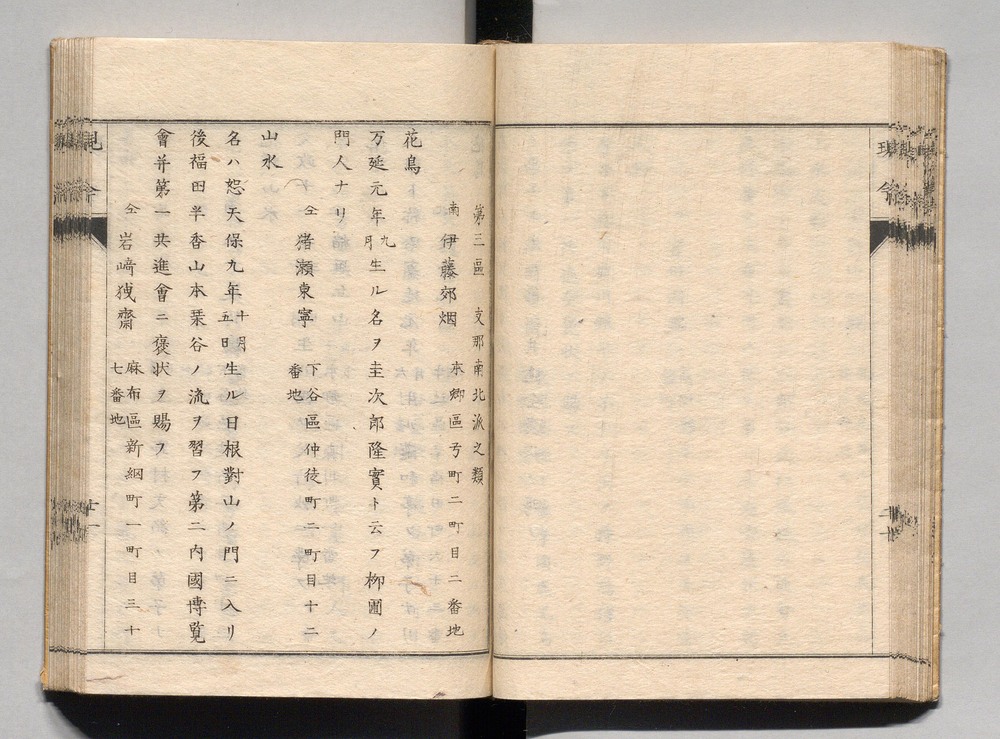 現今
二十
第三區　支那南北派之類
南　伊藤郊烟　本郷區弓町二町目二番地
花鳥
万延元年九月生ル名ヲ圭次郎隆實ト云フ柳圃ノ
門人ナリ
仝　猪瀬東寧　下谷區仲徒町二町目十二番地
山水
名ハ恕天保九年十一月五日生ル日根對山ノ門ニ入リ
後福田半香山本琹谷ノ流ヲ習フ第二内國博覧
會并第一共進會ニ褒状ヲ賜フ
仝　岩﨑　齋　麻布區新網町一町目三十七番地
現今
廿一